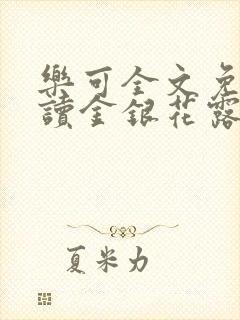 樂可全文免
讀金銀花露
夏米力